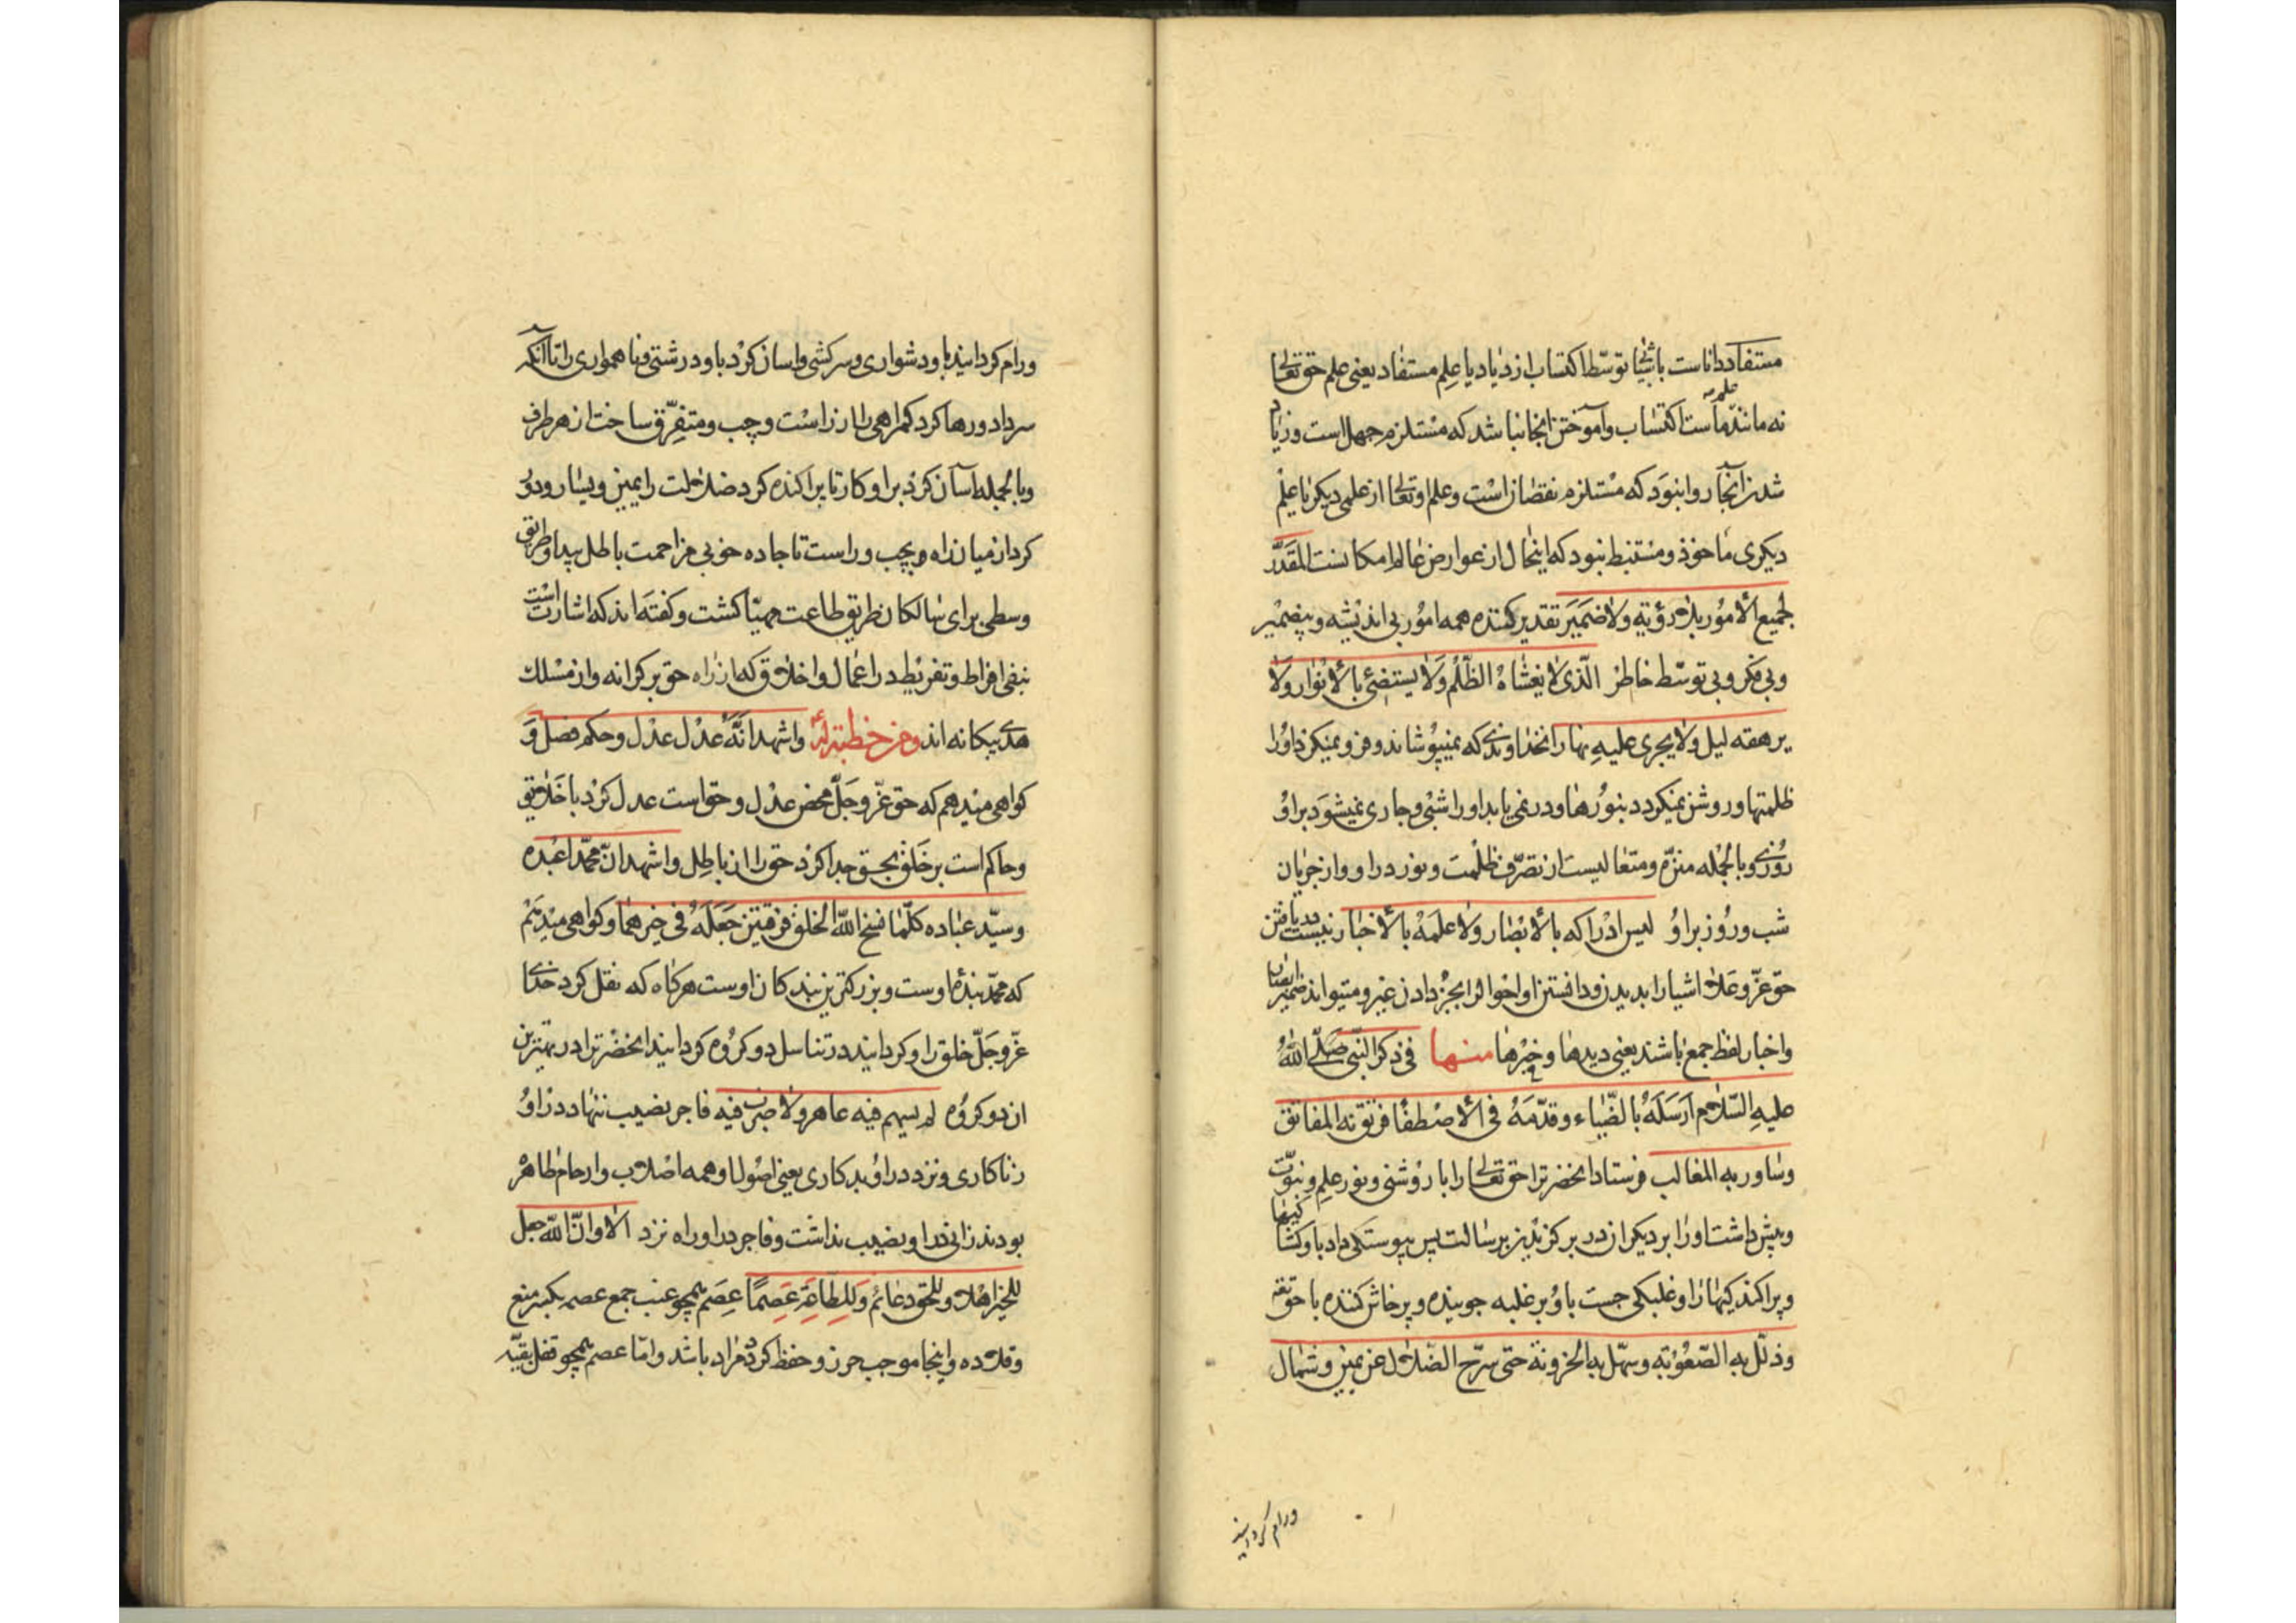 مستفاد داناست باشیا توسّط اکتساب ازدیاد یا علم مستفاد یعنی علم حق تعالی
نه مانند علم ماست اکتساب و آموختن آنجا نباشد که مستلزم جهل است و زیاد
شدن آنجا روا نبود که مستلزم نقصان است و علم او تعالی از علمی دیکر یا علم
دیکری ماخوذ و مستنبط نبود که اینحال از عوارض عالم امکانست المقدّر
لجمیع الأمور بلا رؤیة ولا ضمیر تقدیر کننده همه امور بی اندیشه و بیضمیر
و بی فکر و بی توسّط خاطر الّذی لا یغشاه الظّلم ولا یستضئ بالأنوار ولا
یرهقه لیل ولا یجری علیه نهار انخداوندی که نمیپوشاند و فرو نمیکرد اورا
ظلمتها و روشن نمیکردد بنورها و در نمی یابد اورا شبی و جاری نمیشود براو
روزی و بالجمله منزّه و متعالیست از تصرّف ظلمت و نور در او و از جریان
شب و روز براو لیس ادراکه بالأبصار ولا علمه بالأخبار نیست دریافتن
حق عزّ و علا اشیارا بدیدن و دانستن او احوالرا بخبر دادن غیر و میتواند ابصار
و اخبار لفظ جمع باشند یعنی دیدها و خبرها منها فی ذکر النّبی صلّی اللّه
علیه السّلام ارسله بالضّیاء و قدّمه فی الأصطفا فرتق به المفاتق
و ساور به المغالب فرستاد انحضرترا حق تعالی را با روشنی و نور علم و نبوّت
و پیش داشت اورا بر دیکران در برکزیدن برسالت پس پیوستکی داد باو کشا کیها
و پراکندکیهارا و غلبکی جست باو بر غلبه جوینده و پرخاش کننده با حق
و ذلّل به الصّعوبة و سهّل به الحزونة حتی سرّح الضّلال عن یمین و شمال
ورام کردانید
ورام کردانید باو دشواری و سرکشی و اسان کرد باو درشتی و ناهمواری را تا آنکه
سر داد و رها کرد کمراهی را از راست و چپ و متفرّق ساخت از هر طرف
و بالجمله آسان کرد براو کار تا پراکنده کرد ضلالت را یمین و یسار و دور
کرد از میان راه و بچپ و راست تا جاده حق بی مزاحمت باطل پیدا و طریق
وسطی برای سالکان طریق طاعت مهیّا کشت و کفته اند که اشارت است
بنفی افراط و تفریط در اعمال و اخلاق که از راه حق بر کرانه و از مسلک
هدی بیکانه اند ومن خطبة له واشهد انّه عدل عدل وحکم فصل و
کواهی میدهم که حق عزّ و جلّ محض عدل و حق است عدل کرد با خلایق
و حاکم است بر خلق بحق جدا کرد حق را از باطل واشهد انّ محمّدا عبده
وسیّد عباده کلّما نسخ اللّه الخلق فرقتین جعله فی خیرهما و کواهی میدهم
که محمّد بندۀ اوست و بزرکترین بندکان اوست هرکاه که نقل کرد خدای
عزّ و جلّ خلق را و کردانید در تناسل دو کروه کردانید انحضرترا در بهترین
ان دو کروه لم یسهم فیه عاهر ولا ضرب فیه فاجر نصیب ننهاد در او
زناکاری و نزد در او بدکاری یعنی اصول او همه اصلاب و ارحام طاهر
بودند زانی در او نصیب نداشت و فاجر در او راه نزد الا وانّ اللّه جعل
للخیر اهلا وللحق دعائم وللطاعة عصما عصم همچو عنب جمع عصم بکسر منع
و قلاده و اینجا موجب حرز و حفظ کردن مراد باشد و امّا عصم همچو قفل بقیّه